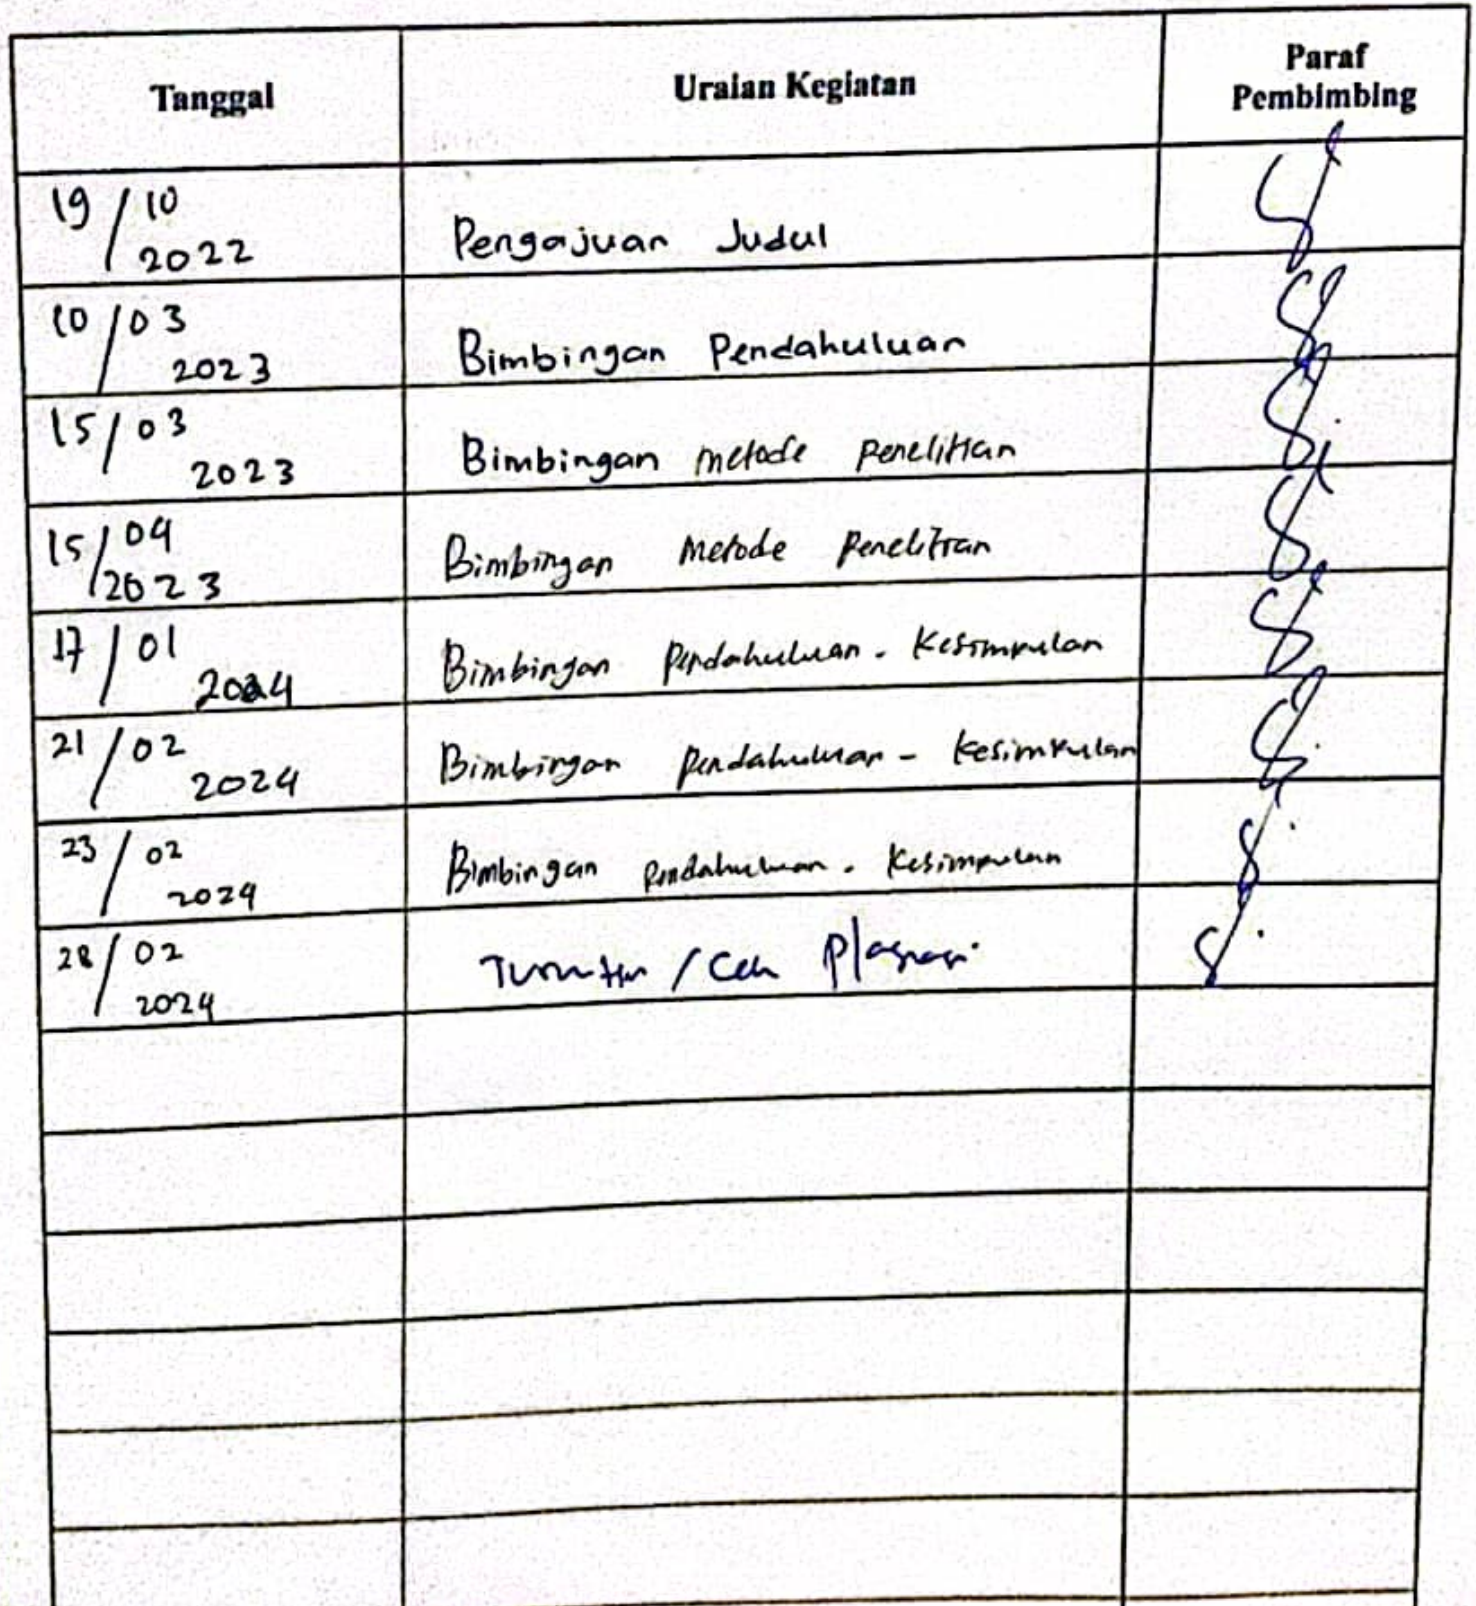 Tanggal
Uraian Kegiatan
Paraf
Pembimbing
19/10
2022
Pengajuan Judul
10/03
2023
Bimbingan Pendahuluan
15/03
2023
Bimbingan metode penelitian
15/04
2023
Bimbingan Metode Penelitian
17/01
2024
Bimbingan Pendahuluan - Kesimpulan
21/02
2024
Bimbingan pendahuluan - kesimpulan
23/02
2024
Bimbingan pendahuluan - Kesimpulan
28/02
2024
/ Cek Plagiasi